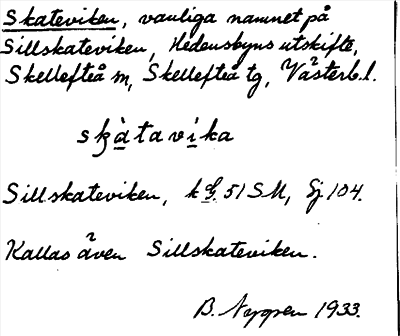 Skateviken, vanliga namnet på
Sillskateviken, Hedensbyns utskifte,
Skellefteå m, Skellefteå tg, Västerb. l.
skàtavika
Sillskateviken, k 51 SM, Sj 104.
Kallas även Sillskateviken.
B. Nygren 1933.